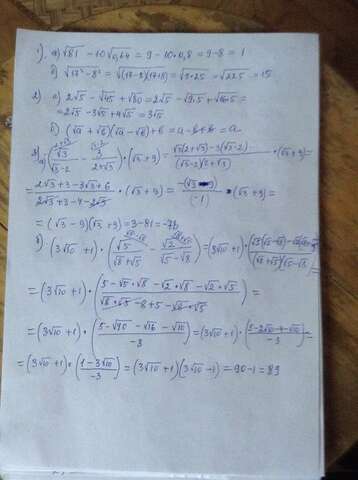 1) а) √81 - 10√0,64 = 9 - 10•0,8 = 9-8 = 1
б) √17² - 8² = √(17-8)(17+8) = √9•25 = √225 = 15
2) а) 2√5 - √45 + √80 = 2√5 - √9•5 + √16•5 =
= 2√5 - 3√5 + 4√5 = 3√5
б) (√a + √6)(√a - √6) + 6 = a - 6 + 6 = a
3) а) (√3/√3-2 - 3/2+√3) • (√3 + 9) = √3(2+√3) - 3(√3-2)/(√3-2)(2+√3) • (√3 + 9) =
= 2√3 + 3 - 3√3 + 6/2√3 + 3 - 4 - 2√3 • (√3 + 9) = -(√3 - 9)/(-1) • (√3 + 9) =
= (√3 - 9)(√3 + 9) = 3 - 81 = -78
б) (3√10 + 1) • (√5/√8+√5 - √2/√5-√8) =
= (3√10 + 1) • (5 - √5•√8 - √2•√8 - √2•√5/√8•√5 - 8 + 5 - √8•√5) =
= (3√10 + 1) • (5 - √40 - √16 - √10/-3) = (3√10 + 1) • (5 - 2√10 - 4 - √10/-3) =
= (3√10 + 1) • (1 - 3√10/-3) = (3√10 + 1)(3√10 - 1) = 90 - 1 = 89